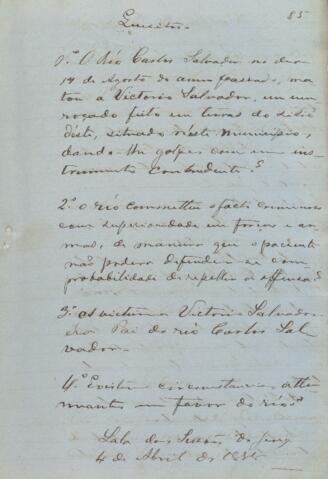 85
Quesitos.
1º O Réo Carlos Salvador no dia
14 de Agosto do anno passado, ma-
tou a Victorio Salvador, em um
roçado feito em terras do sitio
situado neste Municipio,
dando-lhe golpes com um ins-
trumento contundente?
2º O réo commetteu o facto criminoso
com superioridade em forças e ar-
mas, de maneira que o paciente
não podera defender-se com
probabilidade de repellir a offensa?
3º A victima Victorio Salvador
era Pai do réo Carlos Sal-
vador.
4º Existem circumstancias atte-
nuantes em favor do réo?
Sala das Sessões do Jury
4 de Abril de